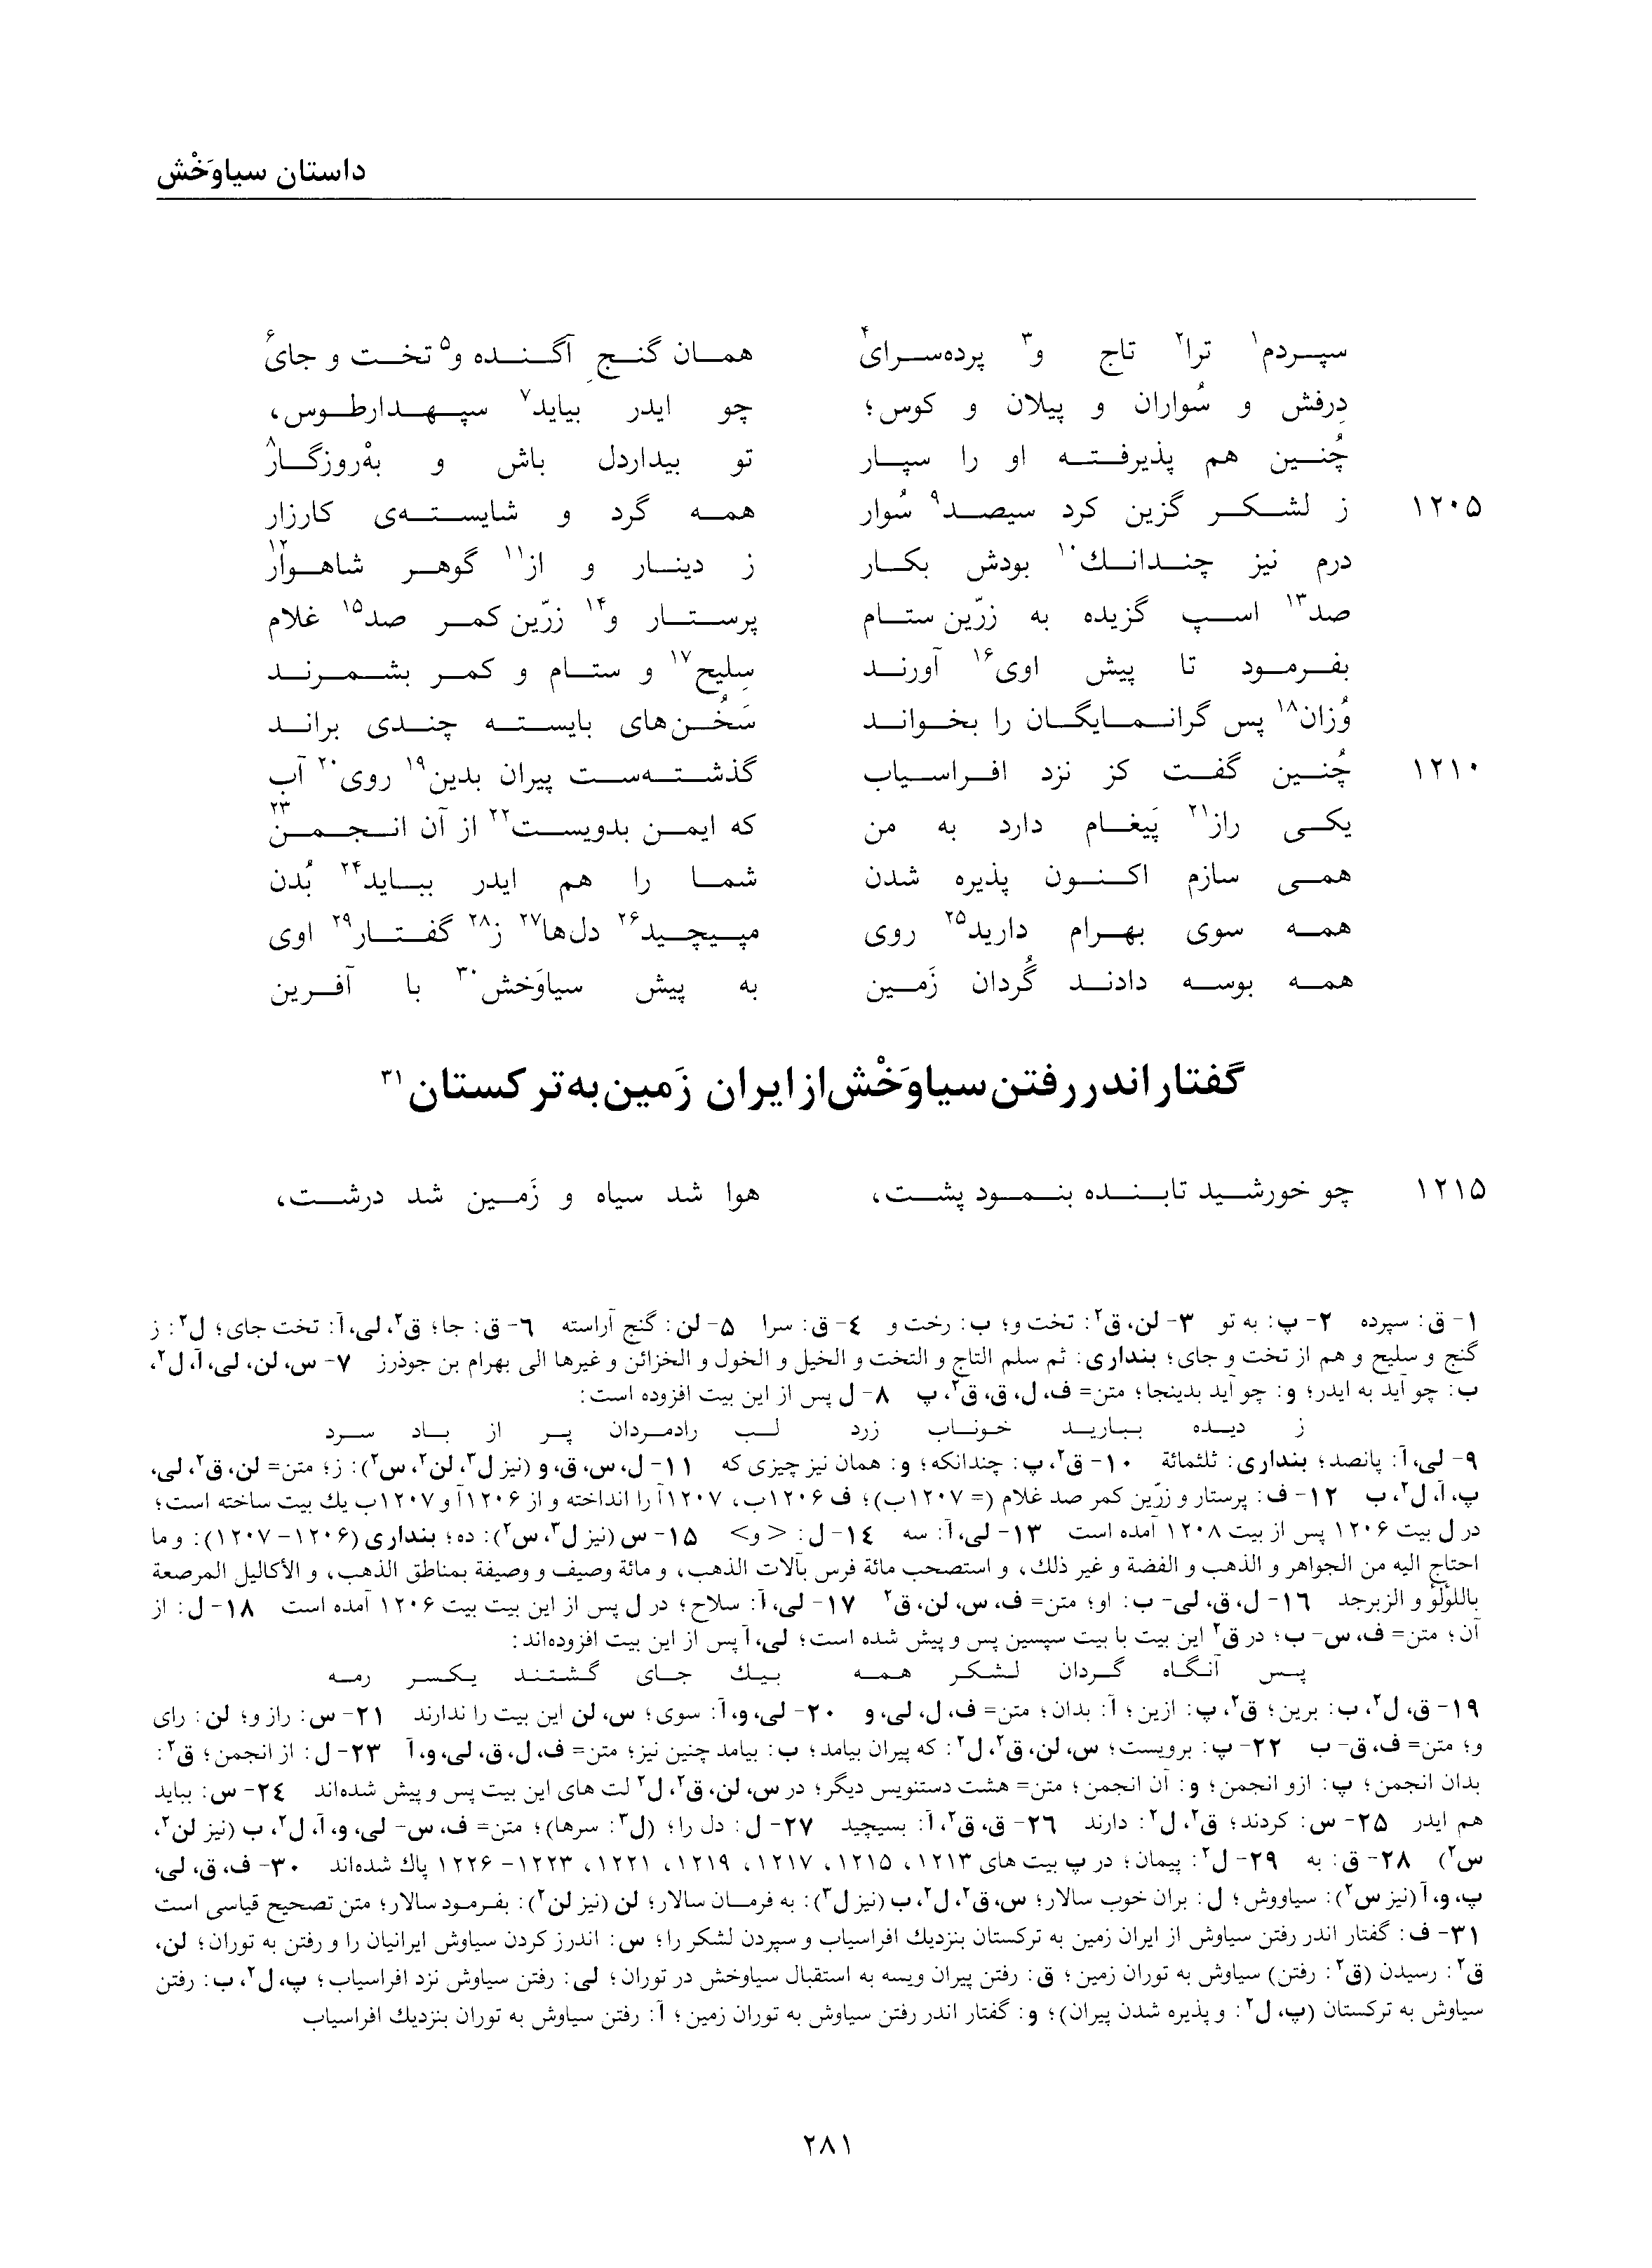 داستان سیاوَخْش
سپردم۱ ترا۲ تاج و۳ پرده‌سرای۴ همان گنجِ آگنده و۵ تخت و جای۶
دِرفش و سُواران و پیلان و کوس؛ چو ایدر بیاید۷ سپهدارطوس،
چُنین هم پذیرفته او را سپار تو بیداردل باش و بهْ‌روزگار۸
۱۲۰۵ ز لشکر گزین کرد سیصد۹ سُوار همه گرد و شایسته‌ی کارزار
درم نیز چندانك۱۰ بودش بکار ز دینار و از۱۱ گوهر شاهوار۱۲
صد۱۳ اسپ گزیده به زرّین ستام پرستار و۱۴ زرّین کمر صد۱۵ غلام
بفرمود تا پیش اوی۱۶ آورند سِلیح۱۷ و ستام و کمر بشمرند
وُزان۱۸ پس گرانمایگان را بخواند سَخُن‌های بایسته چندی براند
۱۲۱۰ چُنین گفت کز نزد افراسیاب گذشته‌ست پیران بدین۱۹ روی۲۰ آب
یکی راز۲۱ پَیغام دارد به من که ایمن بدویست۲۲ از آن انجمن۲۳
همی سازم اکنون پذیره شدن شما را هم ایدر بباید۲۴ بُدن
همه سوی بهرام دارید۲۵ روی مپیچید۲۶ دل‌ها۲۷ ز۲۸ گفتار۲۹ اوی
همه بوسه دادند گُردان زَمین به پیش سیاوَخش۳۰ با آفرین
گفتار اندر رفتن سیاوَخْش از ایران زَمین به ترکستان۳۱
۱۲۱۵ چو خورشید تابنده بنمود پشت، هوا شد سیاه و زَمین شد درشت،
۱- ق: سپرده ۲- پ: به تو ۳- لن، ق۲: تخت و؛ ب: رخت و ۴- ق: سرا ۵- لن: گنج آراسته ۶- ق: جا؛ ق۲، لی، آ: تخت جای؛ ل۲: ز
گنج و سلیح و هم از تخت و جای؛ بنداری: ثم سلم التاج و التخت و الخیل و الخول و الخزائن و غیرها الی بهرام بن جوذرز ۷- س، لن، لی، آ، ل۲،
ب: چو آید به ایدر؛ و: چو آید بدینجا؛ متن= ف، ل، ق، ق۲، پ ۸- ل پس از این بیت افزوده است:
ز دیده ببارید خوناب زرد لب رادمردان پر از باد سرد
۹- لی، آ: پانصد؛ بنداری: ثلثمائة ۱۰- ق۲، پ: چندانکه؛ و: همان نیز چیزی که ۱۱- ل، س، ق، و (نیز ل۳، لن۲، س۲): ز؛ متن= لن، ق۲، لی،
پ، آ، ل۲، ب ۱۲- ف: پرستار و زرّین کمر صد غلام (= ۱۲۰۷ب)؛ ف ۱۲۰۶ب، ۱۲۰۷آ را انداخته و از ۱۲۰۶آ و ۱۲۰۷ب یك بیت ساخته است؛
در ل بیت ۱۲۰۶ پس از بیت ۱۲۰۸ آمده است ۱۳- لی، آ: سه ۱۴- ل: <و> ۱۵- س (نیز ل۳، س۲): ده؛ بنداری (۱۲۰۶- ۱۲۰۷): و ما
احتاج الیه من الجواهر و الذهب و الفضة و غیر ذلك، و استصحب مائة فرس بآلات الذهب، و مائة وصیف و وصیفة بمناطق الذهب، و الأکالیل المرصعة
باللؤلؤ و الزبرجد ۱۶- ل، ق، لی- ب: او؛ متن= ف، س، لن، ق۲ ۱۷- لی، آ: سلاح؛ در ل پس از این بیت بیت ۱۲۰۶ آمده است ۱۸- ل: از
آن؛ متن= ف، س- ب؛ در ق۲ این بیت با بیت سپسین پس و پیش شده است؛ لی، آ پس از این بیت افزوده‌اند:
پس آنگاه گردان لشکر همه بیك جای گشتند یکسر رمه
۱۹- ق، ل۲، ب: برین؛ ق۲، پ: ازین؛ آ: بدان؛ متن= ف، ل، لی، و ۲۰- لی، و، آ: سوی؛ س، لن این بیت را ندارند ۲۱- س: راز و؛ لن: رای
و؛ متن= ف، ق- ب ۲۲- پ: برویست؛ س، لن، ق۲، ل۲: که پیران بیامد؛ ب: بیامد چنین نیز؛ متن= ف، ل، ق، لی، و، آ ۲۳- ل: از انجمن؛ ق۲:
بدان انجمن؛ پ: ازو انجمن؛ و: آن انجمن؛ متن= هشت دستنویس دیگر؛ در س، لن، ق۲، ل۲ لت های این بیت پس و پیش شده‌اند ۲۴- س: بباید
هم ایدر ۲۵- س: کردند؛ ق۲، ل۲: دارند ۲۶- ق، ق۲، آ: بسیچید ۲۷- ل: دل را؛ (ل۳: سرها)؛ متن= ف، س- لی، و، آ، ل۲، ب (نیز لن۲،
س۲) ۲۸- ق: به ۲۹- ل۲: پیمان؛ در پ بیت های ۱۲۱۳، ۱۲۱۵، ۱۲۱۷، ۱۲۱۹، ۱۲۲۱، ۱۲۲۳- ۱۲۲۶ پاك شده‌اند ۳۰- ف، ق، لی،
پ، و، آ (نیز س۲): سیاووش؛ ل: بران خوب سالار؛ س، ق۲، ل۲، ب (نیز ل۳): به فرمان سالار؛ لن (نیز لن۲): بفرمود سالار؛ متن تصحیح قیاسی است
۳۱- ف: گفتار اندر رفتن سیاوش از ایران زمین به ترکستان بنزدیك افراسیاب و سپردن لشکر را؛ س: اندرز کردن سیاوش ایرانیان را و رفتن به توران؛ لن،
ق۲: رسیدن (ق۲: رفتن) سیاوش به توران زمین؛ ق: رفتن پیران ویسه به استقبال سیاوخش در توران؛ لی: رفتن سیاوش نزد افراسیاب؛ پ، ل۲، ب: رفتن
سیاوش به ترکستان (پ، ل۲: و پذیره شدن پیران)؛ و: گفتار اندر رفتن سیاوش به توران زمین؛ آ: رفتن سیاوش به توران بنزدیك افراسیاب
۲۸۱